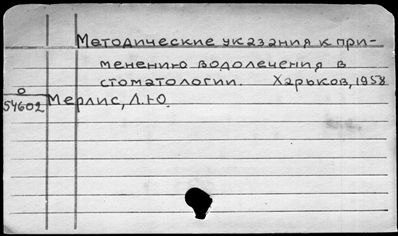 Методические указания к при-
менению водолечения в
стоматологии. Харьков, 1958
О
54602
Мерлис, Л.Ю.